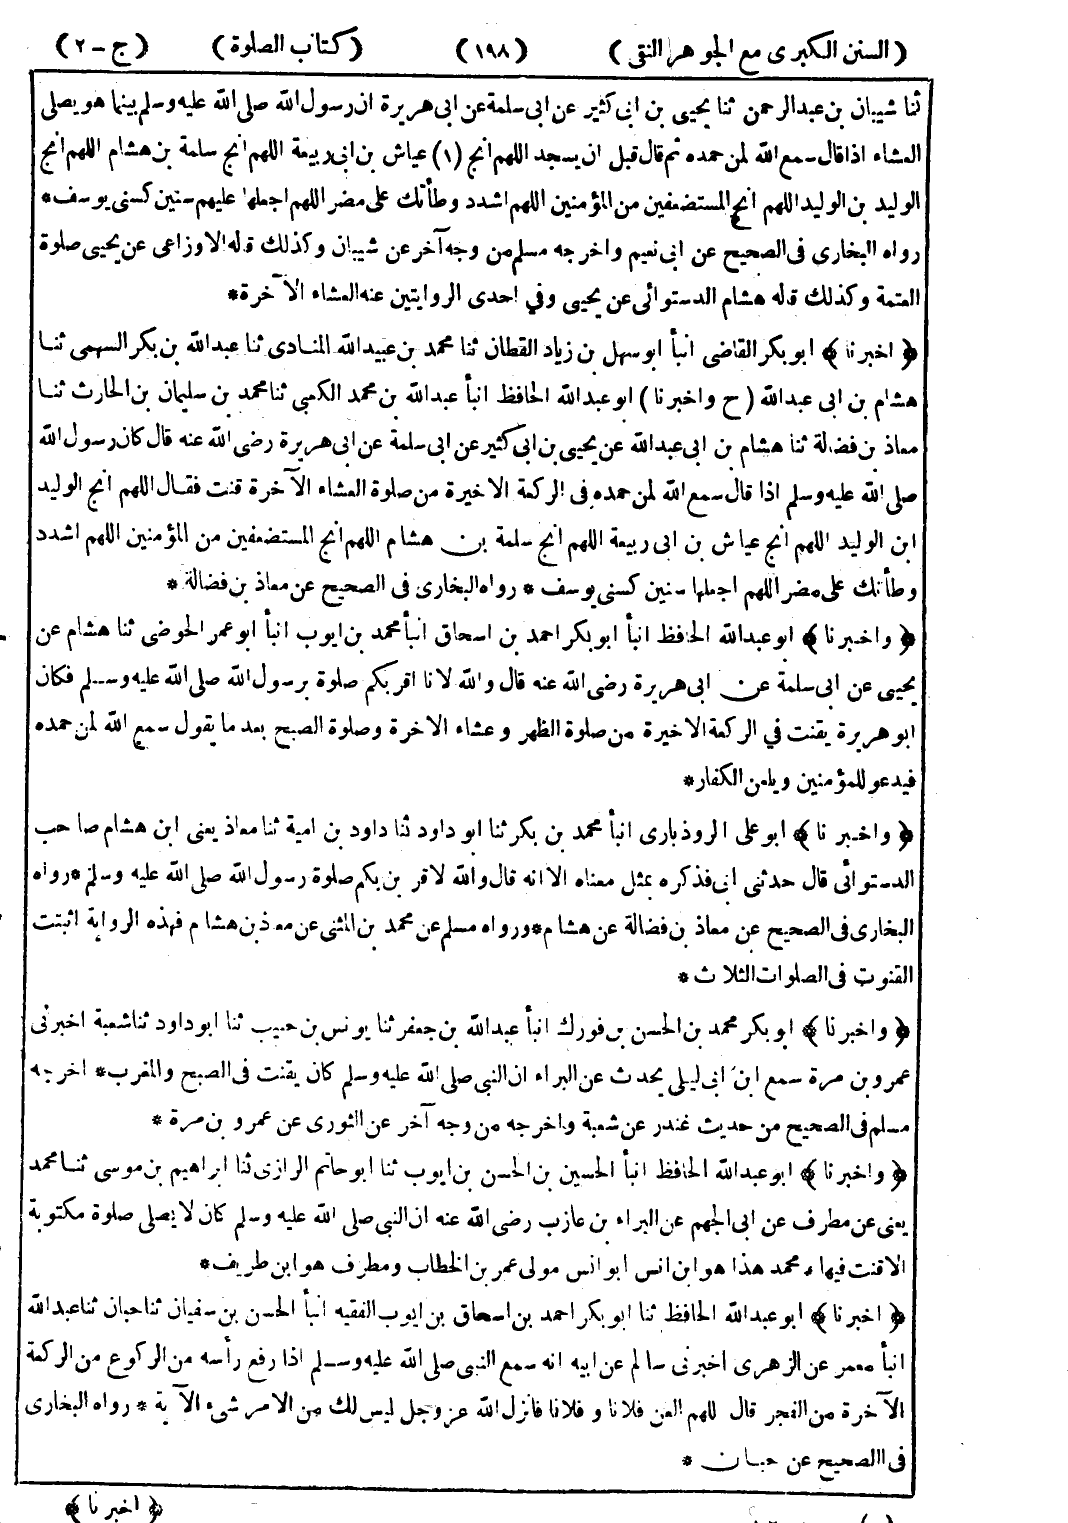 ( السنن الكبرى مع الجوهر النقى ) ( ١٩٨ ) ( كتاب الصلوة ) ( ج - ٢ )
ثنا شيبان بن عبد الرحمن ثنا يحيى بن ابى كثير عن ابى سلمة عن ابى هريرة ان رسول الله صلى الله عليه وسلم بينما هو يصلى
العشاء اذا قال سمع الله لمن حمده ثم قال قبل ان يسجد اللهم انج (١) عياش بن ابى ربيعة اللهم انج سلمة بن هشام اللهم انج
الوليد بن الوليد اللهم انج المستضعفين من المؤمنين اللهم اشدد وطأتك على مضر اللهم اجعلها عليهم سنين كسنى يوسف *
رواه البخارى فى الصحيح عن ابى نعيم واخرجه مسلم من وجه آخر عن شيبان وكذلك قاله الاوزاعى عن يحيى صلوة
العتمة وكذلك قاله هشام الدستوائى عن يحيى وفي احدى الروايتين عنه العشاء الآخرة *
﴿ اخبرنا ﴾ ابو بكر القاضى انبأ ابو سهل بن زياد القطان ثنا محمد بن عبيد الله المنادى ثنا عبد الله بن بكر السهمى ثنا
هشام بن ابى عبد الله ( ح واخبرنا ) ابو عبد الله الحافظ انبأ عبد الله بن محمد الكعبى ثنا محمد بن سليمان بن الحارث ثنا
معاذ بن فضالة ثنا هشام بن ابى عبد الله عن يحيى بن ابى كثير عن ابى سلمة عن ابى هريرة رضى الله عنه قال كان رسول الله
صلى الله عليه وسلم اذا قال سمع الله لمن حمده فى الركعة الاخيرة من صلوة العشاء الآخرة قنت فقال اللهم انج الوليد
ابن الوليد اللهم انج عياش بن ابى ربيعة اللهم انج سلمة بن هشام اللهم انج المستضعفين من المؤمنين اللهم اشدد
وطأتك على مضر اللهم اجعلها سنين كسنى يوسف * رواه البخارى فى الصحيح عن معاذ بن فضالة *
﴿ واخبرنا ﴾ ابو عبد الله الحافظ انبأ ابو بكر احمد بن اسحاق انبأ محمد بن ايوب انبأ ابو عمر الحوضى ثنا هشام عن
يحيى عن ابى سلمة عن ابى هريرة رضى الله عنه قال والله لانا اقربكم صلوة برسول الله صلى الله عليه وسلم فكان
ابو هريرة يقنت في الركعة الاخيرة من صلوة الظهر وعشاء الاخرة وصلوة الصبح بعد ما يقول سمع الله لمن حمده
فيدعو للمؤمنين ويلعن الكفار *
﴿ واخبرنا ﴾ ابو على الروذبارى انبأ محمد بن بكر ثنا ابو داود ثنا داود بن امية ثنا معاذ يعنى ابن هشام صاحب
الدستوائى قال حدثنى ابى فذكره بمثل معناه الا انه قال والله لاقربن بكم صلوة رسول الله صلى الله عليه وسلم * رواه
البخارى فى الصحيح عن معاذ بن فضالة عن هشام * ورواه مسلم عن محمد بن المثنى عن معاذ بن هشام فهذه الرواية اثبتت
القنوت فى الصلوات الثلاث *
﴿ واخبرنا ﴾ ابو بكر محمد بن الحسن بن فورك انبأ عبد الله بن جعفر ثنا يونس بن حبيب ثنا ابو داود ثنا شعبة اخبرنى
عمرو بن مرة سمع ابن ابى ليلى يحدث عن البراء ان النبى صلى الله عليه وسلم كان يقنت فى الصبح والمغرب * اخرجه
مسلم فى الصحيح من حديث غندر عن شعبة واخرجه من وجه آخر عن الثورى عن عمرو بن مرة *
﴿ واخبرنا ﴾ ابو عبد الله الحافظ انبأ الحسين بن الحسن بن ايوب ثنا ابو حاتم الرازى ثنا ابراهيم بن موسى ثنا محمد
يعنى عن مطرف عن ابى الجهم عن البراء بن عازب رضى الله عنه ان النبى صلى الله عليه وسلم كان لا يصلى صلوة مكتوبة
الا قنت فيها * محمد هذا هو ابن انس ابو انس مولى عمر بن الخطاب ومطرف هو ابن طريف *
﴿ اخبرنا ﴾ ابو عبد الله الحافظ ثنا ابو بكر احمد بن اسحاق بن ايوب الفقيه انبأ الحسن بن سفيان ثنا حبان ثنا عبد الله
انبأ معمر عن الزهرى اخبرنى سالم عن ابيه انه سمع النبى صلى الله عليه وسلم اذا رفع رأسه من الركوع من الركعة
الآخرة من الفجر قال للهم العن فلانا وفلانا فانزل الله عز وجل ليس لك من الامر شىء الآية * رواه البخارى
فى الصحيح عن حبان *
﴿ اخبرنا ﴾